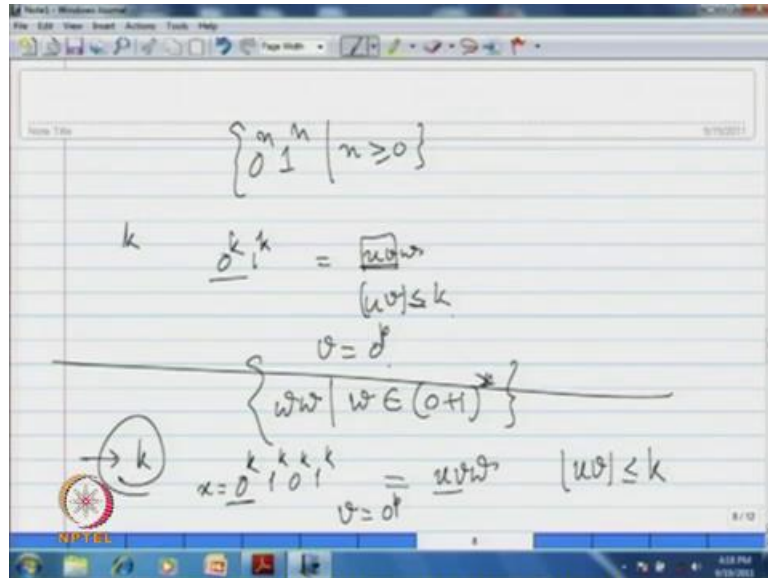 Note1 - Windows Journal
File Edit View Insert Actions Tools Help
Page Width
Note Title
9/19/2011
{0^n 1^n | n ≥ 0}
k 0^k 1^k = uvw
|uv| ≤ k
v = 0^p
{ww | w ∈ (0+1)^*}
→ k x = 0^k 1^k 0^k 1^k = uvw |uv| ≤ k
v = 0^p
NPTEL
8/12
8
4:18 PM
9/19/2011